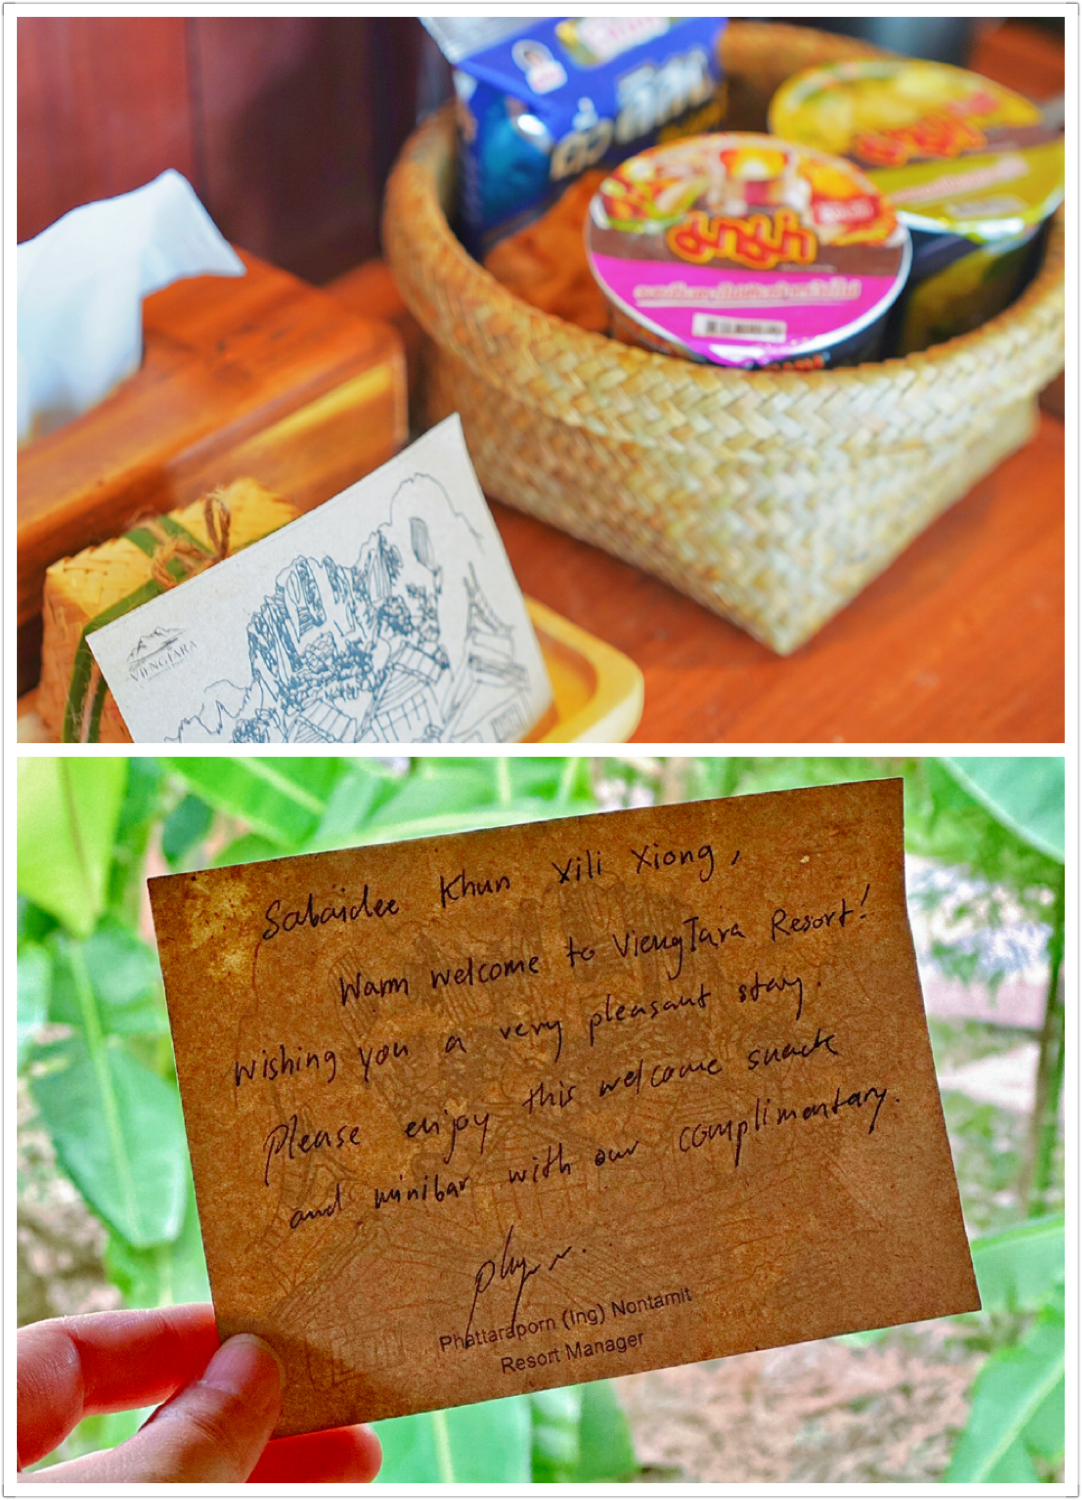 มาม่า
มาม่า
VIENGTARA
Sabaidee Khun Xili Xiong,
Warm welcome to ViengTara Resort!
Wishing you a very pleasant stay.
Please enjoy this welcome snack
and minibar with our complimentary.
Phattaraporn (Ing) Nontamit
Resort Manager